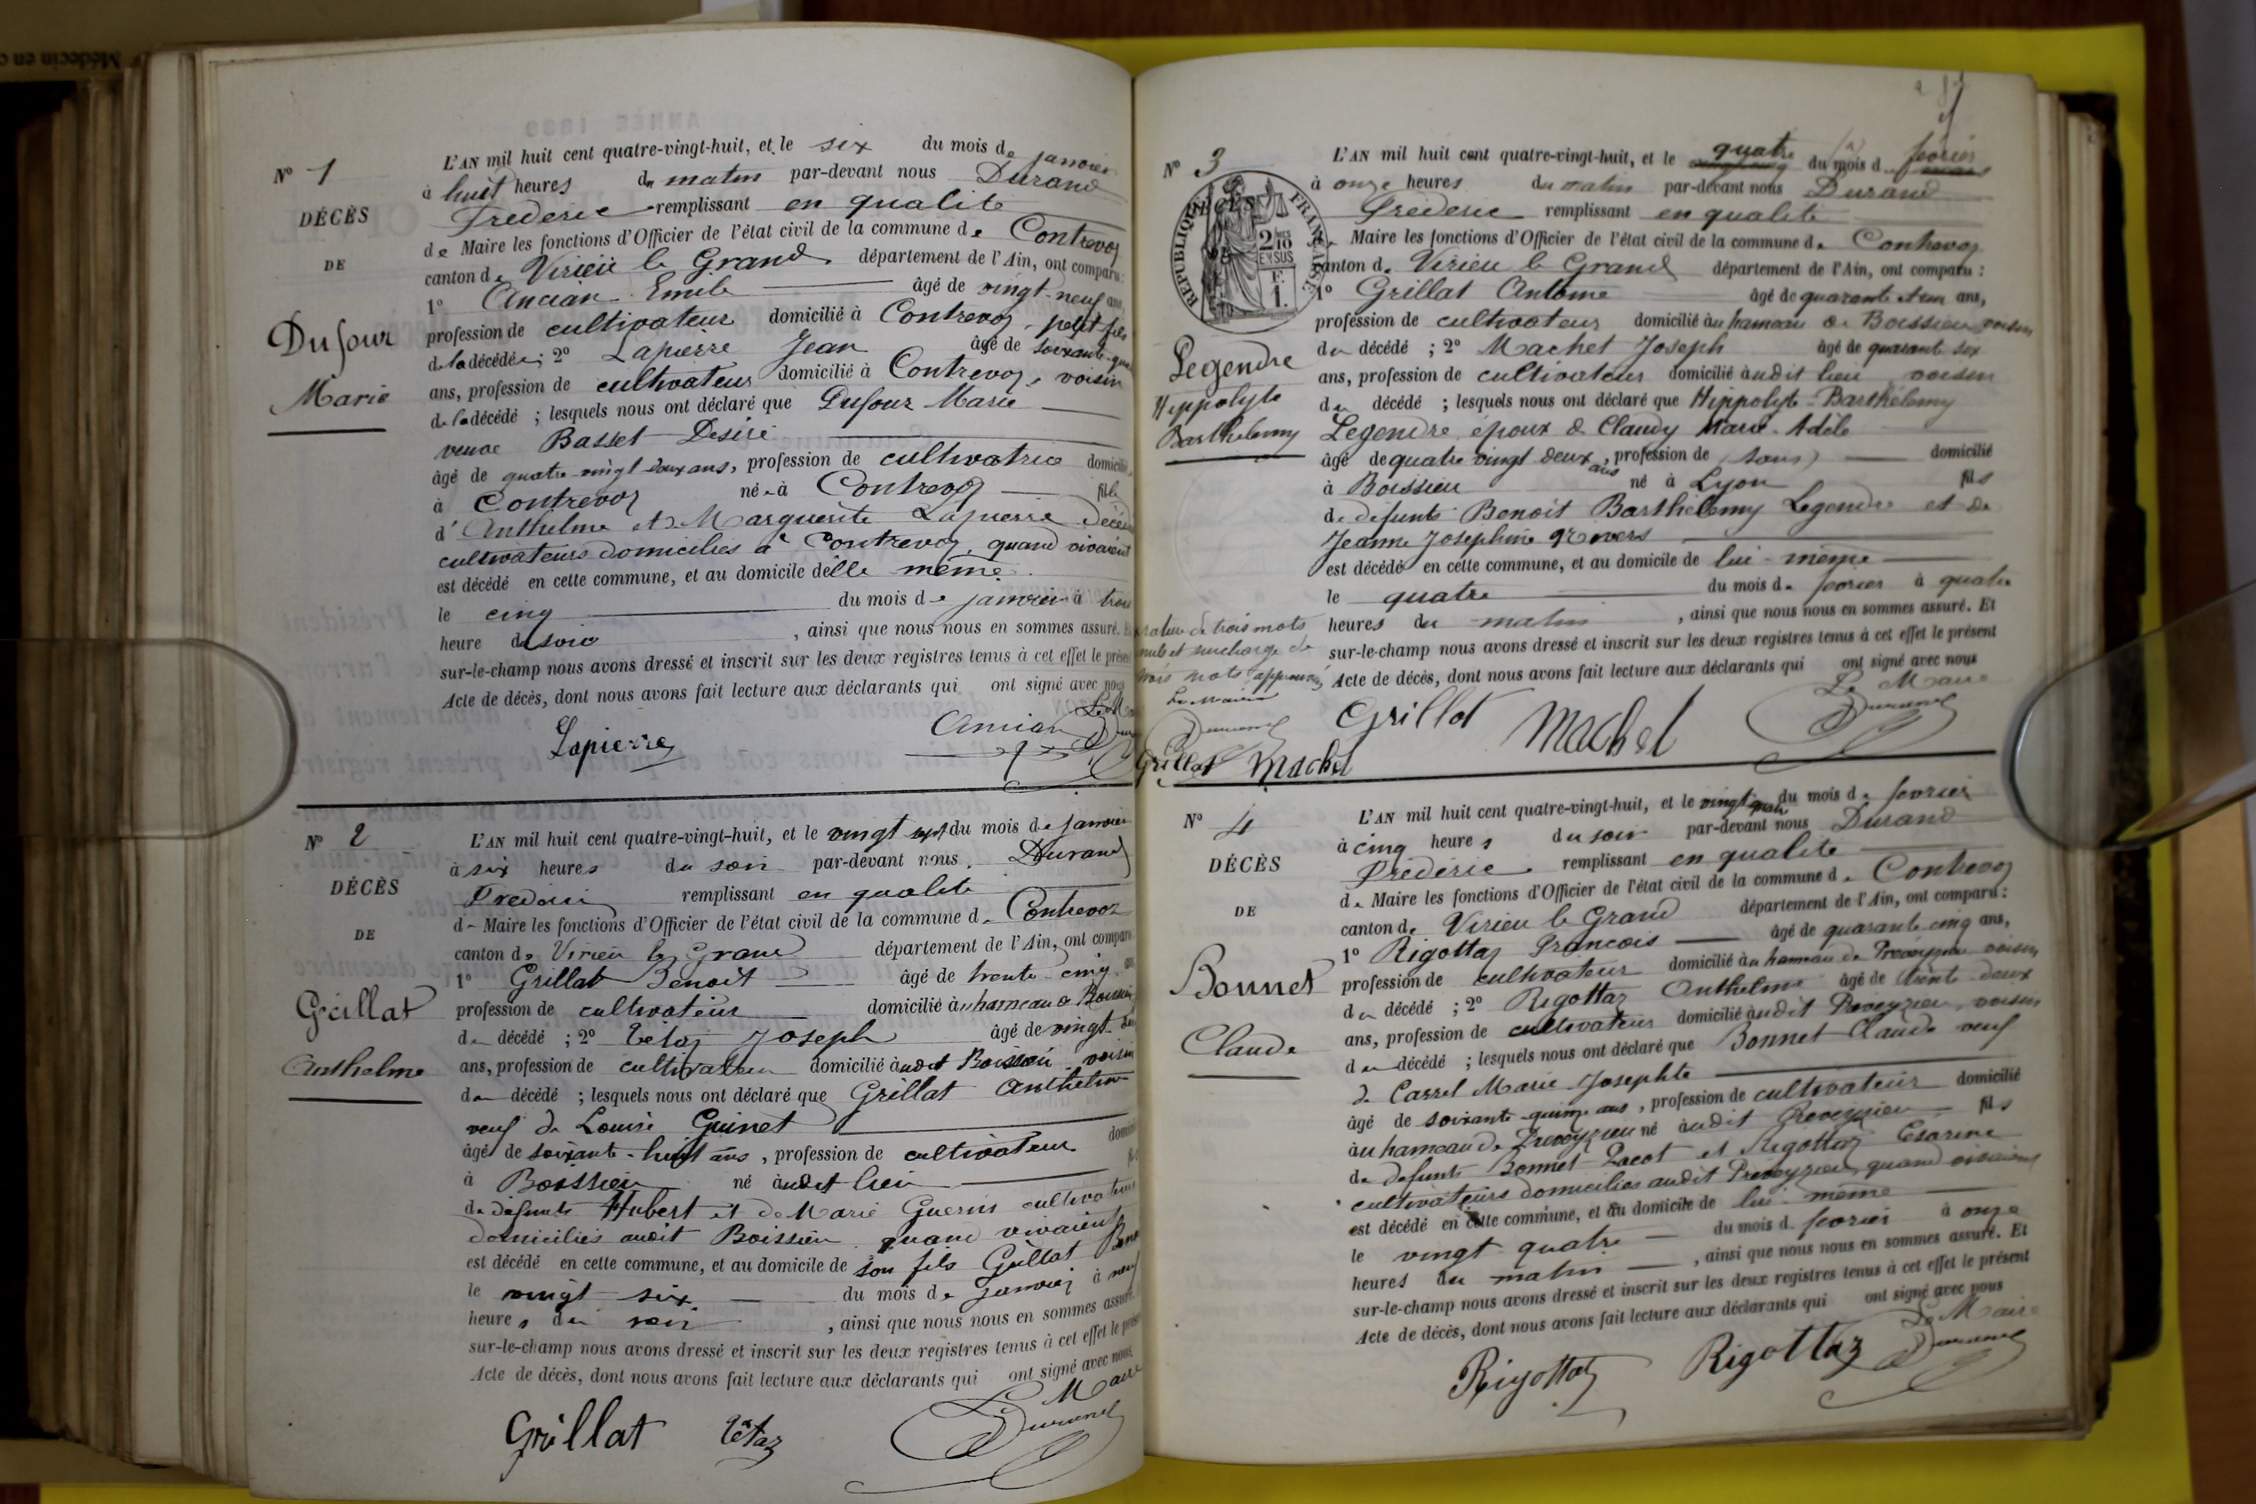 Nº 1
DÉCÈS
DE
Dufour
Marie
L'AN mil huit cent quatre-vingt-huit, et le six du mois de janvier
à huit heures du matin par-devant nous Durand
Frédéric remplissant en qualité
de Maire les fonctions d'Officier de l'état civil de la commune de Contrevoz
canton de Virieu le Grand département de l'Ain, ont comparu :
1º Ancian Emile âgé de vingt-neuf ans,
profession de cultivateur domicilié à Contrevoz, petit fils
de la décédée ; 2º Lapierre Jean âgé de soixante-
ans, profession de cultivateur domicilié à Contrevoz, voisin
de la décédé ; lesquels nous ont déclaré que Dufour Marie
veuve Basset Désiré
âgé de quatre-vingt deux ans, profession de cultivatrice domicilié
à Contrevoz née à Contrevoz fille
d'Anthelme et de Marguerite Lapierre décédés
cultivateurs domiciliés à Contrevoz, quand vivaient
est décédé en cette commune, et au domicile d'elle même
le cinq du mois de janvier à trois
heure du soir , ainsi que nous nous en sommes assuré. Et
sur-le-champ nous avons dressé et inscrit sur les deux registres tenus à cet effet le présent
Acte de décès, dont nous avons fait lecture aux déclarants qui ont signé avec nous
Lapierre Ancian
Nº 2
DÉCÈS
DE
Grillat
Anthelme
L'AN mil huit cent quatre-vingt-huit, et le vingt sept du mois de janvier
à six heures du soir par-devant nous Durand
Frédéric remplissant en qualité
de Maire les fonctions d'Officier de l'état civil de la commune de Contrevoz
canton de Virieu le Grand département de l'Ain, ont comparu
1º Grillat Benoit âgé de trente-cinq
profession de cultivateur domicilié au hameau de Boissieu
du décédé ; 2º Tétaz Joseph âgé de vingt-
ans, profession de cultivateur domicilié audit Boissieu voisin
du décédé ; lesquels nous ont déclaré que Grillat Anthelme
veuf de Louise Guinet
âgé de soixante-huit ans, profession de cultivateur domicilié
à Boissieu né audit lieu
de défunts Hubert et de Marie Guerin cultivateurs
domiciliés audit Boissieu quand vivaient
est décédé en cette commune, et au domicile de son fils Grillat
le vingt-six du mois de janvier à neuf
heures du soir , ainsi que nous nous en sommes assuré.
sur-le-champ nous avons dressé et inscrit sur les deux registres tenus à cet effet le présent
Acte de décès, dont nous avons fait lecture aux déclarants qui ont signé avec nous
Le Maire
Grillat Tétaz Durand
Nº 3
RÉPUBLIQUE FRANÇAISE
Legendre
Hippolyte
Barthélemy
L'AN mil huit cent quatre-vingt-huit, et le quatre du mois de février
à onze heures du matin par-devant nous Durand
Frédéric remplissant en qualité
de Maire les fonctions d'Officier de l'état civil de la commune de Contrevoz
canton de Virieu le Grand département de l'Ain, ont comparu :
1º Grillat Antoine âgé de quarante et un ans,
profession de cultivateur domicilié au hameau de Boissieu voisin
du décédé ; 2º Machet Joseph âgé de quarante six
ans, profession de cultivateur domicilié audit lieu voisin
du décédé ; lesquels nous ont déclaré que Hippolyte-Barthélemy
Legendre, époux de Claudy Marie-Adèle
âgé de quatre vingt deux ans, profession de (sans) domicilié
à Boissieu né à Lyon fils
de défunts Benoit Barthélemy Legendre et de
Jeanne Joséphine
est décédé en cette commune, et au domicile de lui-même
le quatre du mois de février à quatre
heures du matin , ainsi que nous nous en sommes assuré. Et
sur-le-champ nous avons dressé et inscrit sur les deux registres tenus à cet effet le présent
Acte de décès, dont nous avons fait lecture aux déclarants qui ont signé avec nous
Le Maire
Grillat Machet Durand
rature de trois mots
nuls et surcharge de
trois mots approuvés
Le Maire
Durand
Grillat Machet
Nº 4
DÉCÈS
DE
Bonnet
Claude
L'AN mil huit cent quatre-vingt-huit, et le vingt quatre du mois de février
à cinq heures du soir par-devant nous Durand
Frédéric remplissant en qualité
de Maire les fonctions d'Officier de l'état civil de la commune de Contrevoz
canton de Virieu le Grand département de l'Ain, ont comparu :
1º Rigottaz François âgé de quarante-cinq ans,
profession de cultivateur domicilié au hameau de Preveyzieu voisin
du décédé ; 2º Rigottaz Anthelme âgé de trente-deux
ans, profession de cultivateur domicilié audit Preveyzieu, voisin
du décédé ; lesquels nous ont déclaré que Bonnet Claude veuf
de Carrel Marie Josephte
âgé de soixante-quinze ans, profession de cultivateur domicilié
au hameau de Preveyzieu né audit Preveyzieu fils
de défunts Bonnet Pacot et Rigottaz
cultivateurs domiciliés audit Preveyzieu quand vivaient
est décédé en cette commune, et au domicile de lui-même
le vingt-quatre du mois de février à onze
heures du matin , ainsi que nous nous en sommes assuré. Et
sur-le-champ nous avons dressé et inscrit sur les deux registres tenus à cet effet le présent
Acte de décès, dont nous avons fait lecture aux déclarants qui ont signé avec nous
Le Maire
Rigottaz Rigottaz Durand